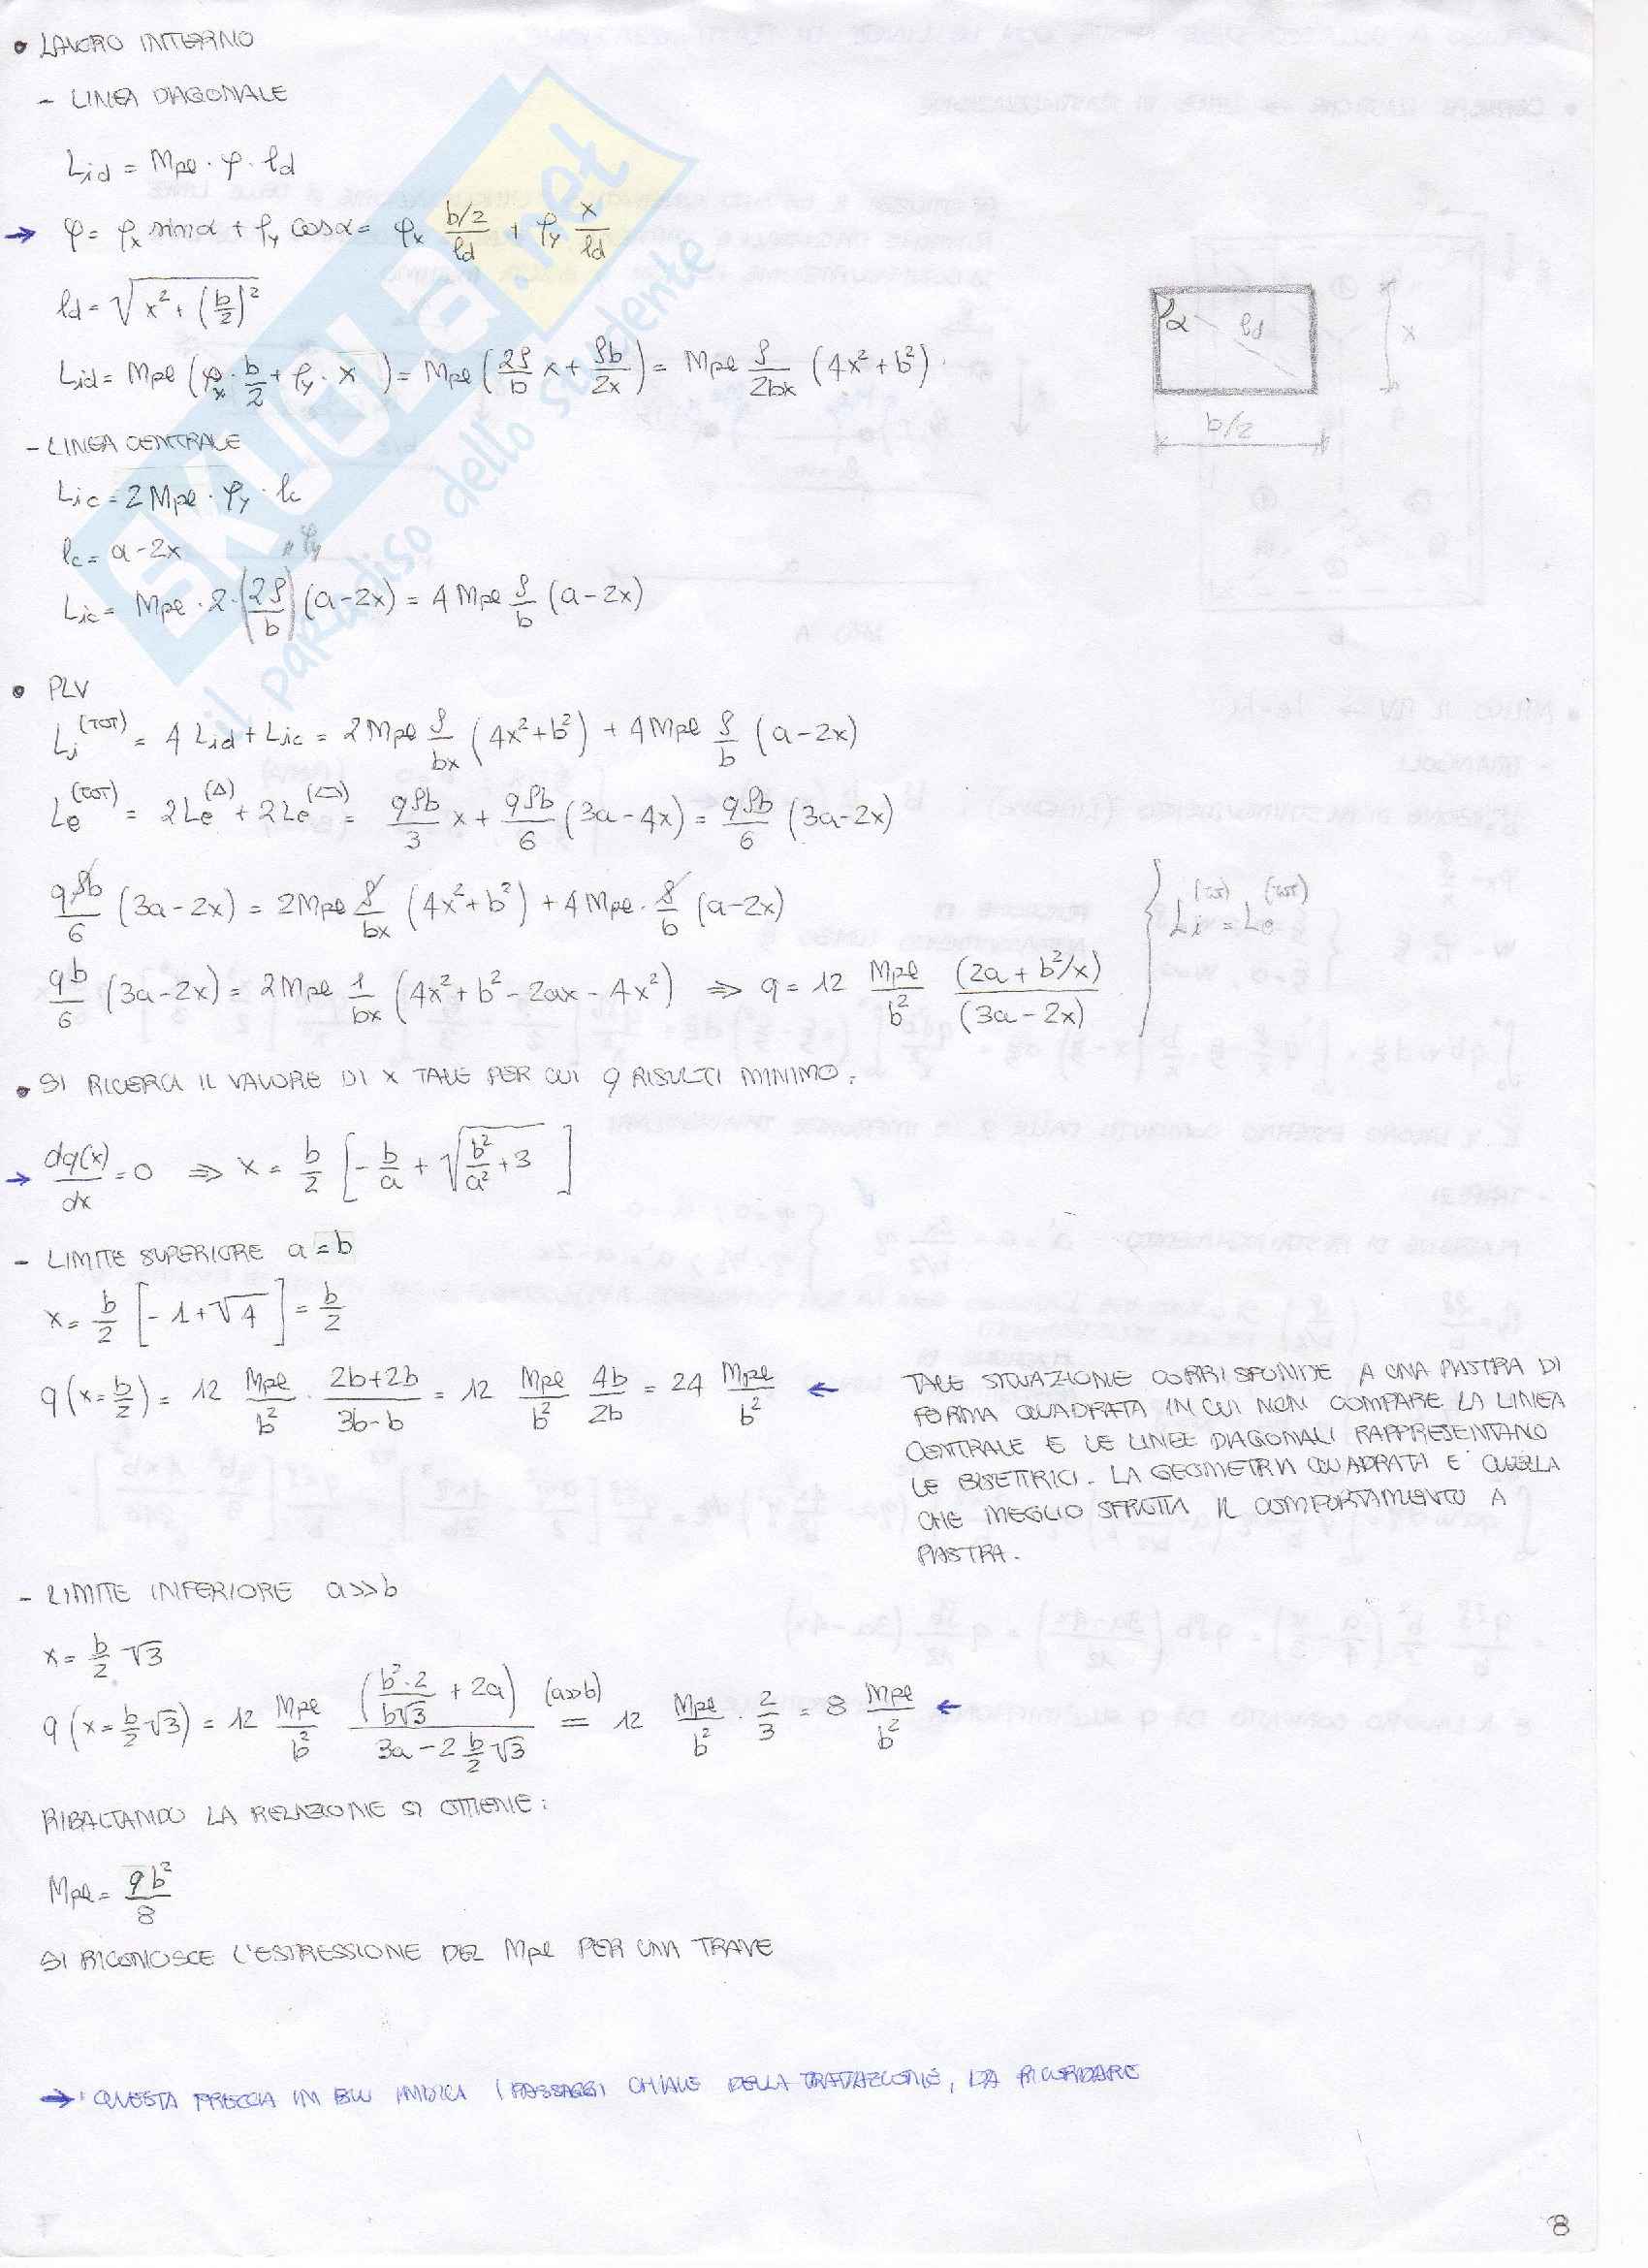 • LAVORO INTERNO
- LINEA DIAGONALE
Lid = Mpl · φ · ld
→ φ = φx sinα + φy cosα = φx (b/2)/ld + φy x/ld
ld = √(x² + (b/2)²)
Lid = Mpl (φx · b/2 + φy · x) = Mpl (2δ/b x + δb/2x) = Mpl δ/2bx (4x² + b²)
α ld x
b/2
- LINEA CENTRALE
Lic = 2 Mpl · φy · lc
lc = a - 2x
" φy
Lic = Mpl · 2 · (2δ/b) (a - 2x) = 4 Mpl δ/b (a - 2x)
• PLV
Li(TOT) = 4 Lid + Lic = 2 Mpl δ/bx (4x² + b²) + 4 Mpl δ/b (a - 2x)
Le(TOT) = 2Le(△) + 2Le(⏢) = qδb/3 x + qδb/6 (3a - 4x) = qδb/6 (3a - 2x)
qδb/6 (3a - 2x) = 2Mpl δ/bx (4x² + b²) + 4 Mpl · δ/b (a - 2x)
Li(TOT) = Le(TOT)
qb/6 (3a - 2x) = 2 Mpl 1/bx (4x² + b² - 2ax - 4x²) ⇒ q = 12 Mpl/b² (2a + b²/x)/(3a - 2x)
• SI RICERCA IL VALORE DI X TALE PER CUI q RISULTI MINIMO:
→ dq(x)/dx = 0 ⇒ x = b/2 [-b/a + √(b²/a² + 3)]
- LIMITE SUPERIORE a = b
x = b/2 [-1 + √4] = b/2
q (x = b/2) = 12 Mpl/b² · (2b + 2b)/(3b - b) = 12 Mpl/b² 4b/2b = 24 Mpl/b² ←
TALE SITUAZIONE CORRISPONDE A UNA PIASTRA DI
FORMA QUADRATA IN CUI NON COMPARE LA LINEA
CENTRALE E LE LINEE DIAGONALI RAPPRESENTANO
LE BISETTRICI. LA GEOMETRIA QUADRATA E' QUELLA
CHE MEGLIO SFRUTTA IL COMPORTAMENTO A
PIASTRA.
- LIMITE INFERIORE a >> b
x = b/2 √3
q (x = b/2 √3) = 12 Mpl/b² (b²·2/b√3 + 2a)/(3a - 2 b/2 √3) (a>>b) = 12 Mpl/b² · 2/3 = 8 Mpl/b² ←
RIBALTANDO LA RELAZIONE SI OTTIENE:
Mpl = qb²/8
SI RICONOSCE L'ESPRESSIONE DEL Mpl PER UNA TRAVE
→ : QUESTA FRECCIA IN BLU INDICA I PASSAGGI CHIAVE DELLA TRATTAZIONE, DA RICORDARE
8
SKUOLA.net
il paradiso dello studente